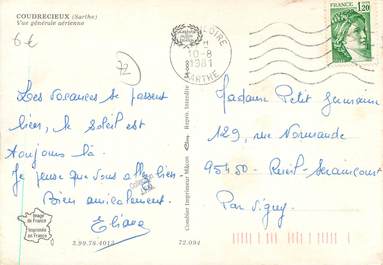 COUDRECIEUX (Sarthe)
Vue générale aérienne
6€
72
10-8
1981
SARTHE
FRANCE
1,20
Les vacances se passent
bien, le soleil est
toujours là.
Je pense que vous allez bien.
Bien amicalement.
Eliane
Madame Petit Germaine
129, rue Normande
95450 - Ruil-Seraincourt
Par Vigny
Combier Imprimeur Mâcon
Reprod. Interdite
Image
de France
Imprimée
en France
3.99.78.4013
72.094